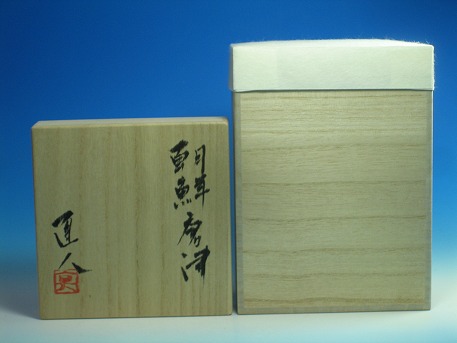 朝鮮唐津
直人